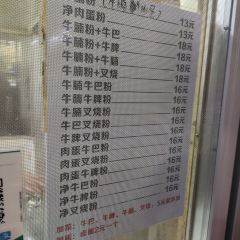 净肉蛋粉 13元
牛腩粉+牛巴 18元
牛腩粉+牛脾 18元
牛腩粉+叉烧 18元
牛腩牛巴粉 16元
牛腩牛脾粉 16元
牛腩叉烧粉 16元
牛巴叉烧粉 16元
肉蛋牛巴粉 16元
肉蛋叉烧粉 16元
净牛巴粉 16元
净牛脾粉 16元
净叉烧粉 16元
加菜：牛巴、牛脾、牛腩、叉烧
卤蛋2元一个